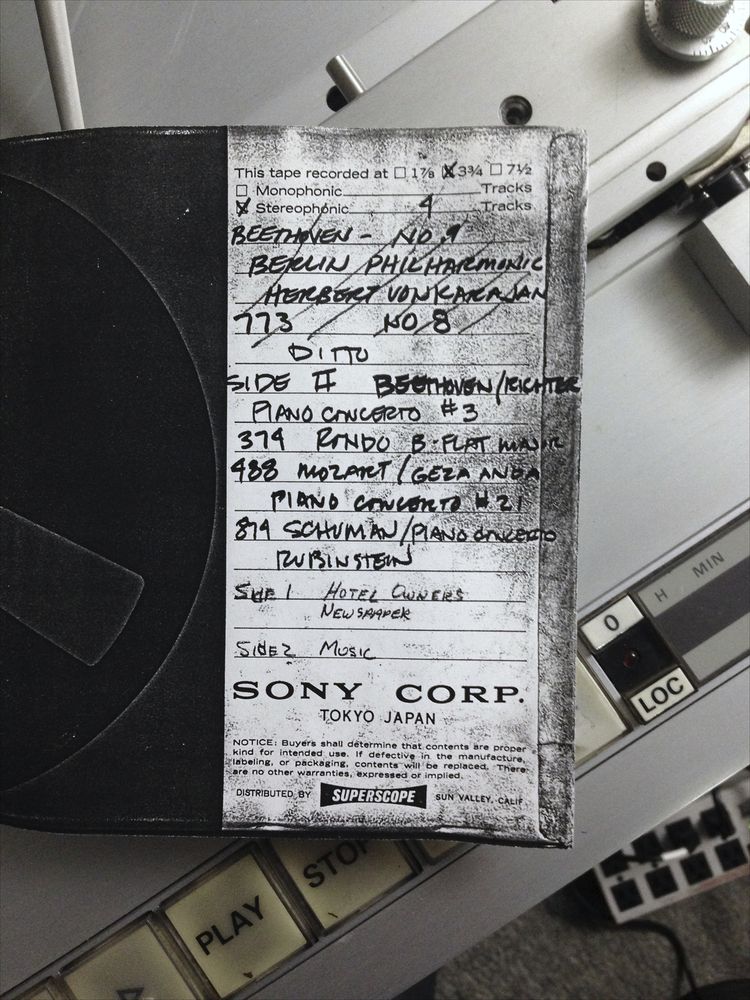 This tape recorded at ☐ 1⅞ ☒ 3¾ ☐ 7½
☐ Monophonic Tracks
☒ Stereophonic 4 Tracks
BEETHOVEN - NO. 9
BERLIN PHILHARMONIC
HERBERT VON KARAJAN
773 NO 8
DITTO
SIDE II BEETHOVEN/RICHTER
PIANO CONCERTO #3
374 RONDO B-FLAT MAJOR
488 MOZART/GEZA ANDA
PIANO CONCERTO #21
874 SCHUMAN/PIANO CONCERTO
RUBINSTEIN
SIDE 1 HOTEL OWNERS
NEWSPAPER
SIDE 2 MUSIC
SONY CORP.
TOKYO JAPAN
NOTICE: Buyers shall determine that contents are proper
kind for intended use. If defective in the manufacture,
labeling, or packaging, contents will be replaced. There
are no other warranties, expressed or implied.
DISTRIBUTED BY SUPERSCOPE SUN VALLEY, CALIF.
H MIN
0
LOC
STOP
PLAY